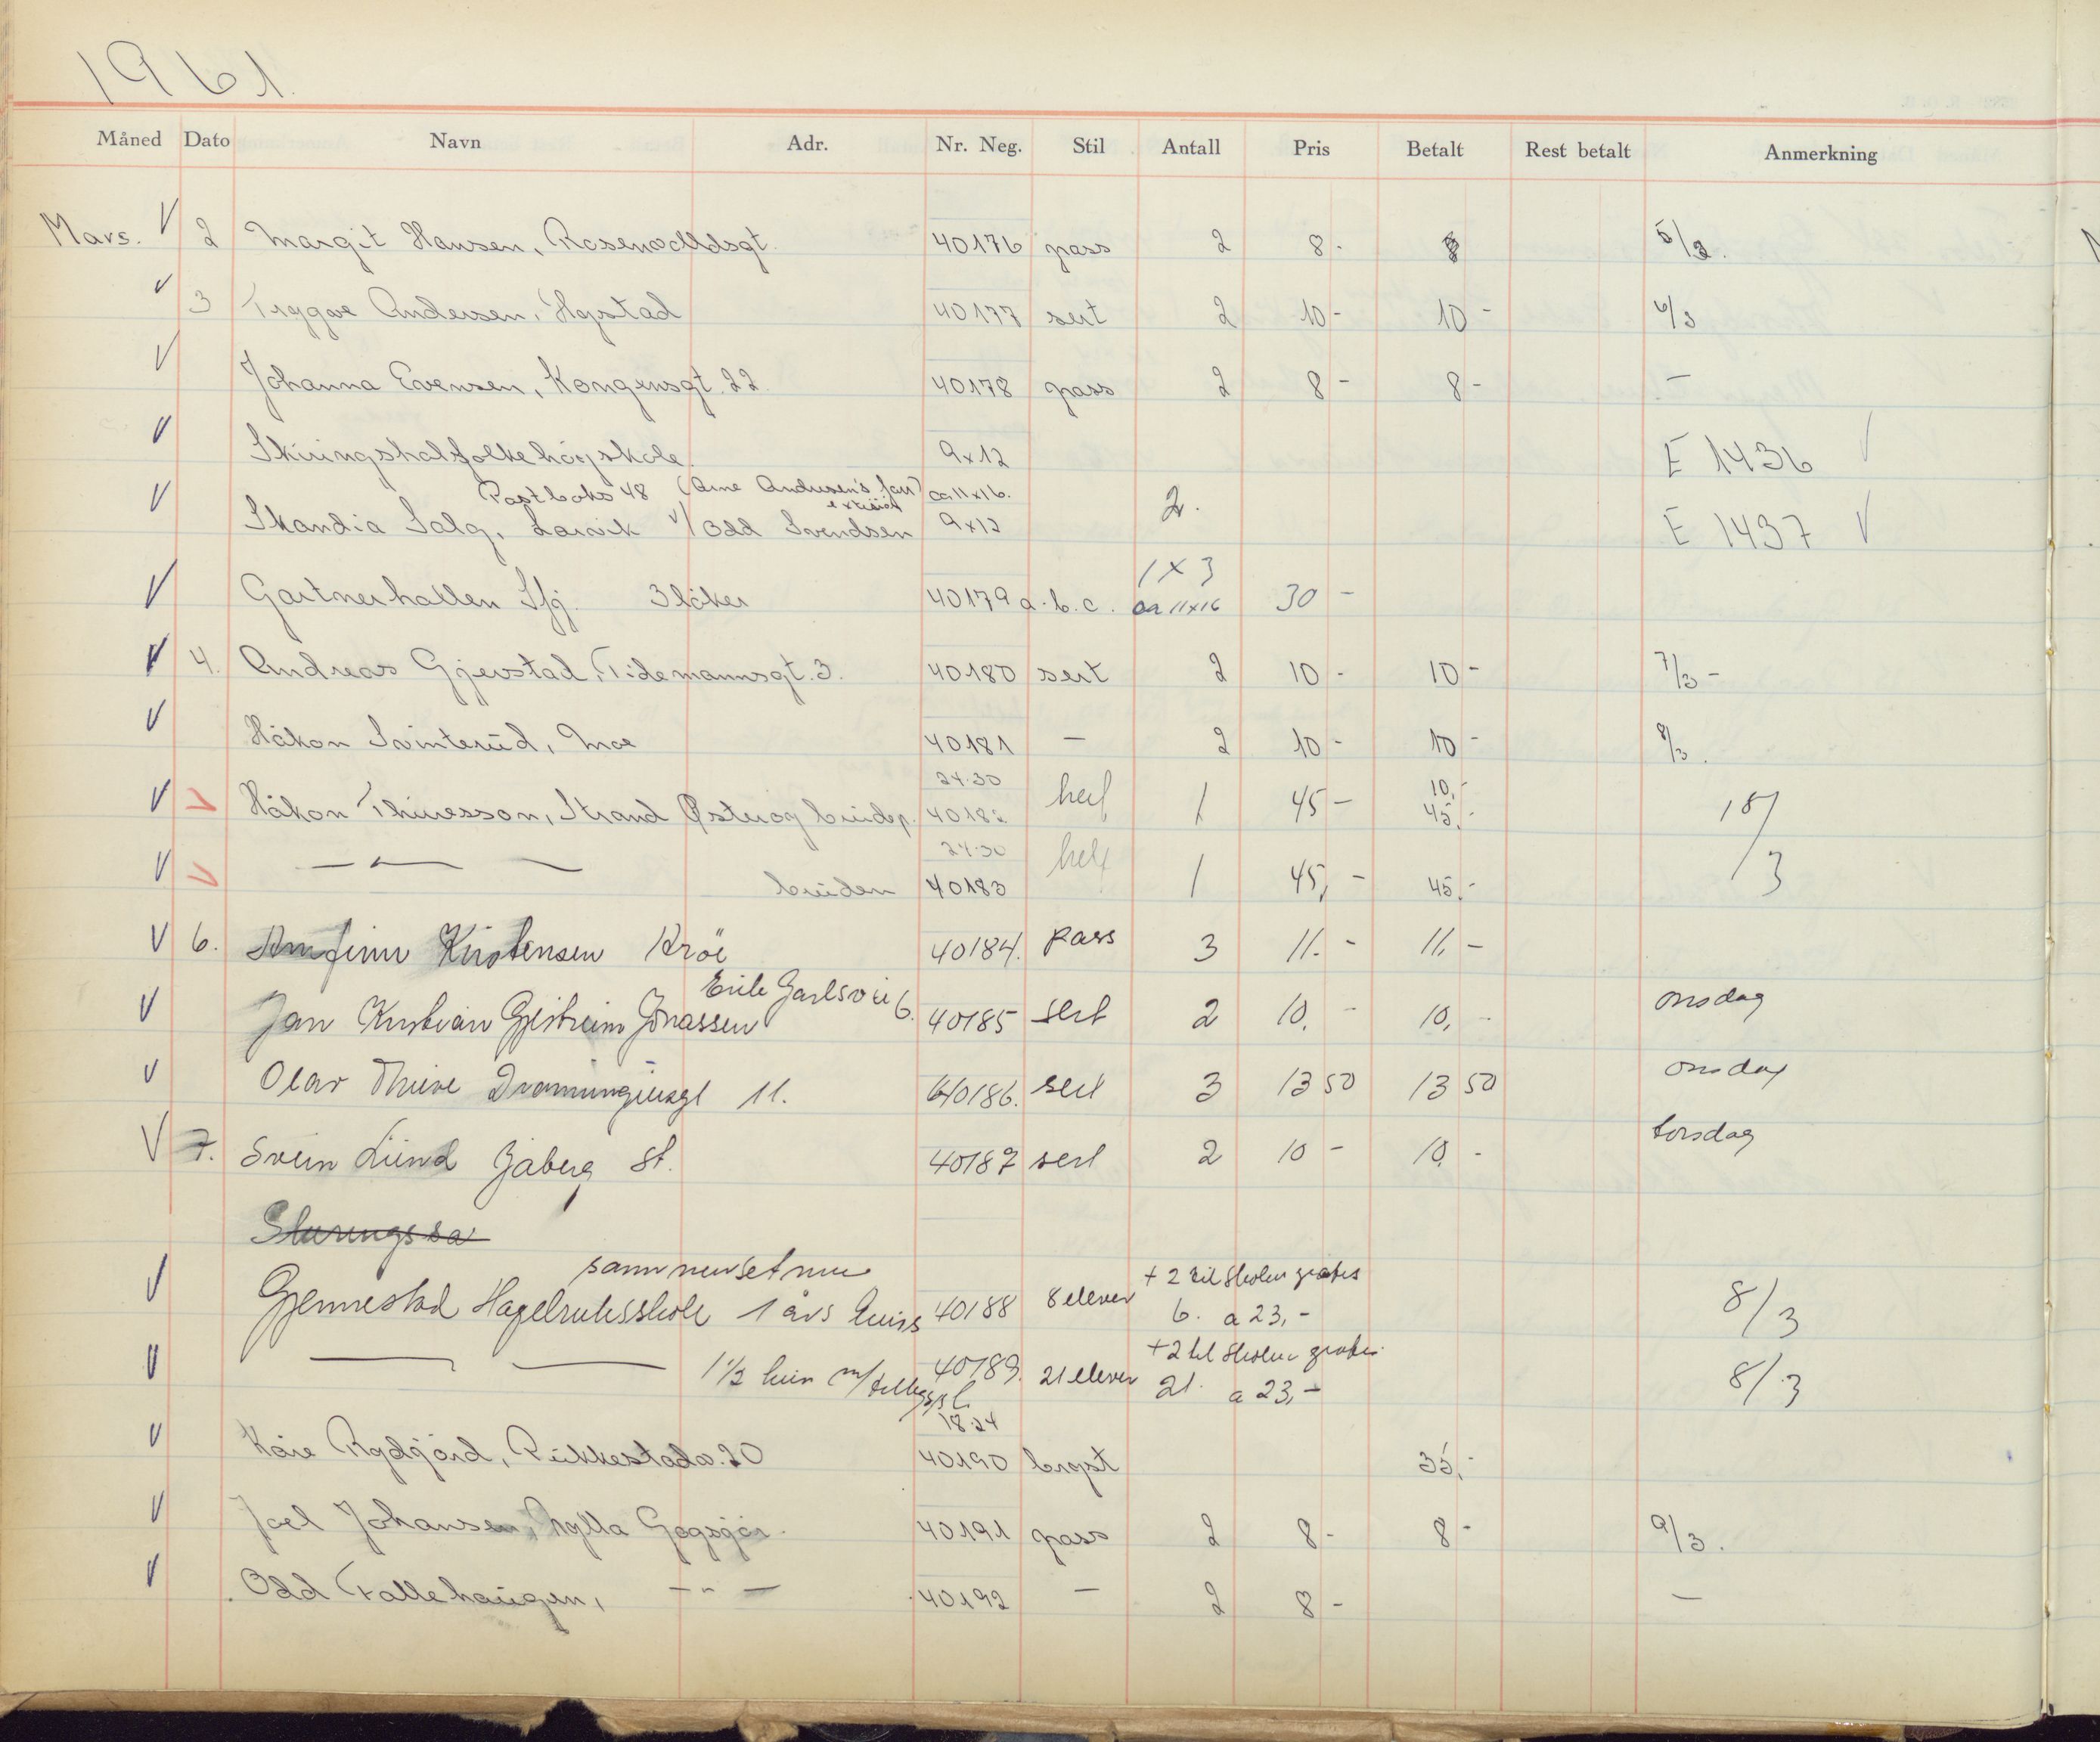 1961.
Måned Dato Navn Adr. Nr. Neg. Stil Antall Pris Betalt Rest betalt Anmerkning
Mars. V 2 Margit Hansen, Rosenvoldsgt. 40176 pass 2 8 - 8 5/3.
V 3 Tryggve Andersen, Hystad 40177 sert 2 10 - 10 - 6/3
V Johanna Evensen, Kongensgt. 22. 40178 pass 2 8 - 8 - —
V Skiringshal folkehøyskole. 9x12 E 1436 V
Postboks 48 (Arne Andresen's ca 11x16.
V Skandia Salg, Larvik v/ Odd Svendsen 9x12 2. E 1437 V
1 x 3
V Gartnerhallen Sfj. 3 løker 40179 a. b. c. ca 11x16 30 -
V 4. Andreas Gjerstad, Tidemannsgt. 3. 40180 sert 2 10 - 10 - 7/3 -
V Håkon Svinterud, Moe 40181 — 2 10 - 10 - 8/3.
24.30 10,-
V Håkon Thuresson, Strand Østerøy brudep. 40182 hel 1 45 - 45,- 18/3
24.30
V — " — — bruden 40183 hel 1 45, - 45,-
V 6. Arnfinn Kristensen 40184. pass 3 11. - 11, -
Erik Jarlsvei 6.
V Jan Kristian Gjelstrum Jonassen 40185 sert 2 10, - 10, - onsdag
V Olav Thive Dronningensgt 11. 40186. sert 3 13 50 13 50 onsdag
V 7. Svein Lund Jåberg St. 40187 sert 2 10 - 10, - torsdag
sammensetning + 2 til skolen gratis
V Gjennestad Hagebruksskole 1 års kurs 40188 8 elever 6. a 23,- 8/3
+ 2 til skolen gratis.
V — — 1 1/2 kurs m/ 40189. 21 elever 21. a 23,- 8/3
18.24
V Kåre Rydgård, Peikkestadv. 20 40190 bryst 35,-
V Joel Johansen, Hylla 40191 pass 2 8 - 8 - 9/3.
V Odd Fallehaugen, — " — 40192 — 2 8 - —